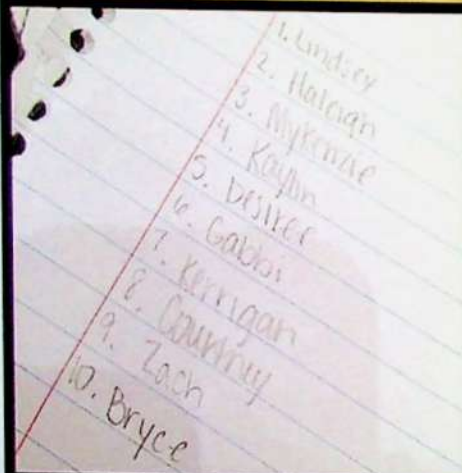 1. Lindsey
2. Haleigh
3. Mykenzie
4. Kaylin
5. Desiree
6. Gabbi
7. Kerrigan
8. Courtney
9. Zach
10. Bryce